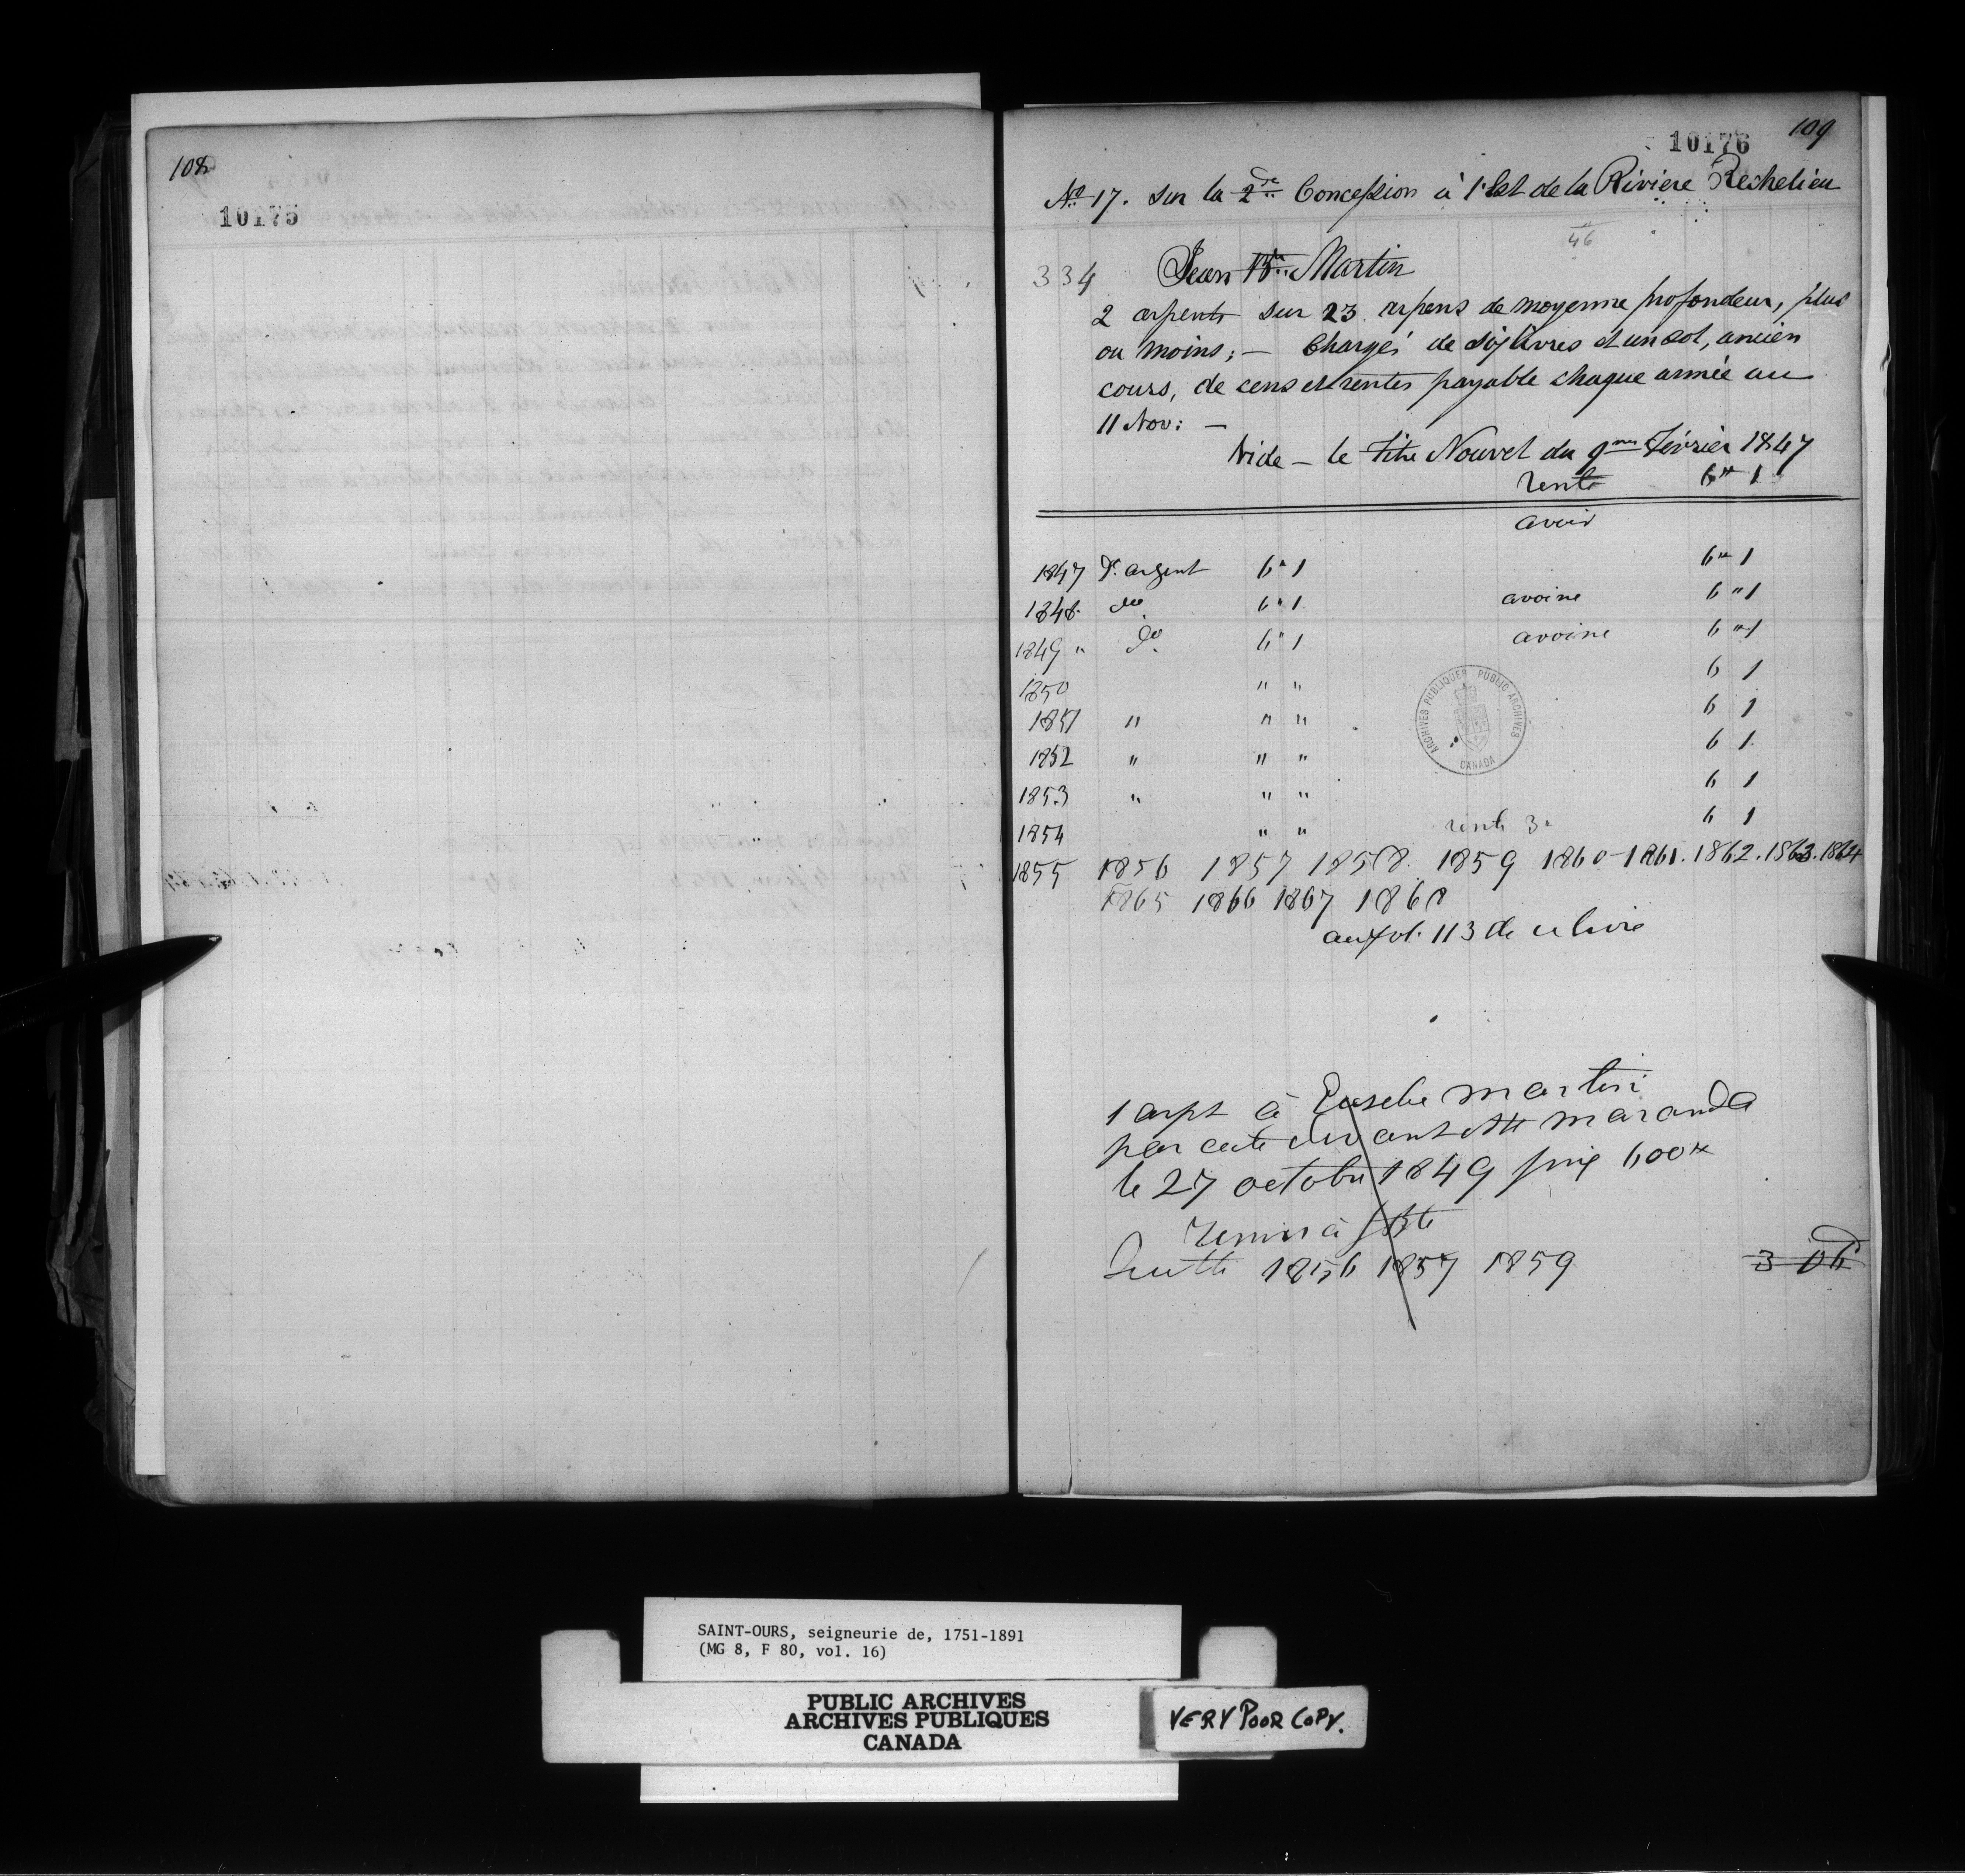 108
10175
10176 109
No 17. sur la 2de Concession à l'Est de la Riviere Richelieu
46
334 Jean Bte Martin
2 arpents sur 23 arpens de moyenne profondeur, plus
ou moins; — Chargés de six livres et un sol, ancien
cours, de cens et rentes payable chaque année au
11 Nov: —
Vide — le Titre Nouvel du 9me Février 1847
rente 6tt 1
avoir
1847 Dt argent 6 " 1 6 " 1
1848 do 6 " 1 avoine 6 " 1
1849 " do 6 " 1 avoine 6 " 1
1850 " " 6 1
1851 " " " 6 1
1852 " " " 6 1
1853 " " " 6 1
1854 " " rente 3 6 1
1855 1856 1857 1858. 1859 1860-1861. 1862. 1863. 1864
1865 1866 1867 1868
au fol. 113 de ce livre
ARCHIVES PUBLIQUES PUBLIC ARCHIVES
CANADA
1 arpt à Eusebe Martin
par acte devant Maranda
le 27 octobre 1849 prix 600tt
remis à JBte
quitte 1856 1857 1859
SAINT-OURS, seigneurie de, 1751-1891
(MG 8, F 80, vol. 16)
PUBLIC ARCHIVES
ARCHIVES PUBLIQUES
CANADA
VERY POOR COPY.